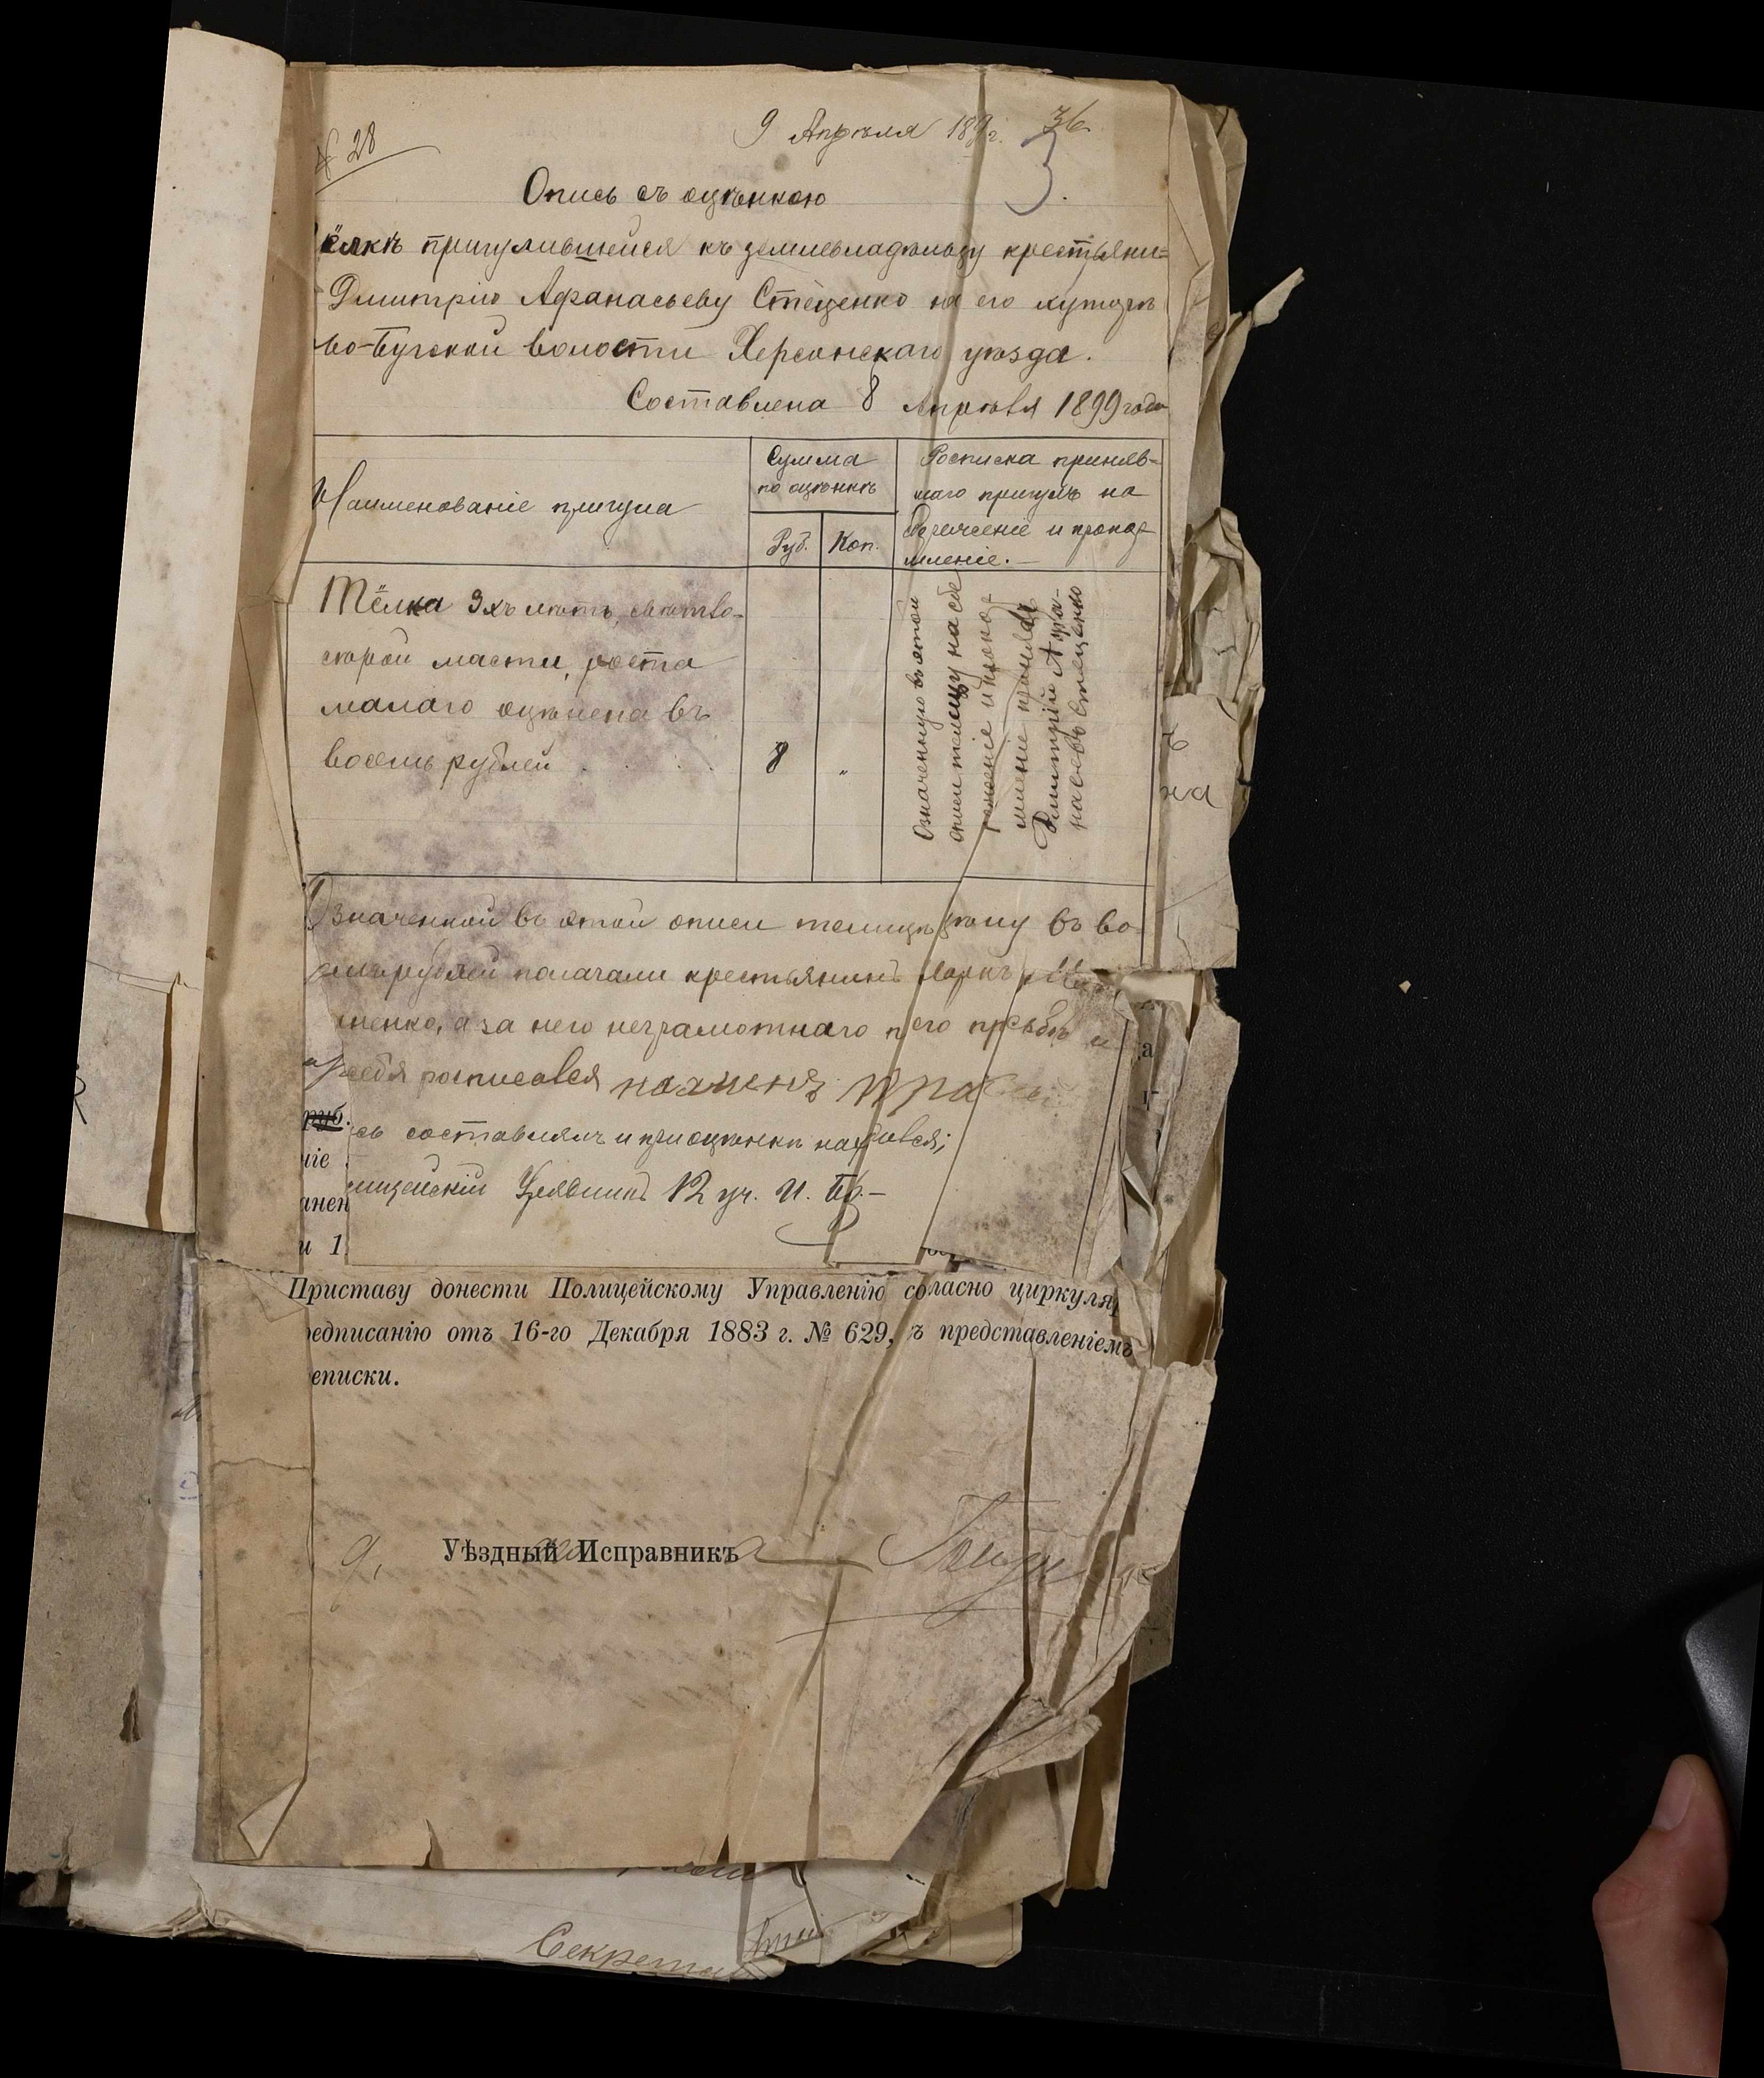 № 28
9 Апрѣля 189 г. 36
3.
Опись съ оцѣнкою
ёлкѣ пригулившейся къ землевладѣльцу крестьяни=
Дмитрію Афанасьеву Стеценко на его хуторѣ
во-Бугской волости Херсонскаго уѣзда.
Составлена 8 Апрѣля 1899 года
Наименованіе пригула
Сумма
по оцѣнкѣ
Руб. Коп.
Росписка приняв=
шаго пригулъ на
сбереженіе и прокор=
мленіе.—
Тёлка 3хъ лѣтъ, свѣтло-
сѣрой масти, роста
малаго оцѣнена въ
восемь рублей 8 „
Означенную въ этой
описи телицу на сбе
реженіе и прокор=
мленіе принялъ
Дмитрій Афа-
насьевъ Стеценко
Означенной въ этой описи телицѣ цѣну въ во
семь рублей полагали крестьянинъ Маркъ
ненко, а за него неграмотнаго п его просьбѣ и
себя росписался
руб.
сь составлялъ и при оцѣнкѣ находился;
ніе
лицейскій Урядникъ 12 уч. И.
анен
и 1
Приставу донести Полицейскому Управленію согласно циркуляр
редписанію отъ 16-го Декабря 1883 г. № 629, ъ представленіемъ
еписки.
Уѣздный Исправникъ
ъ
на
а
Секрета